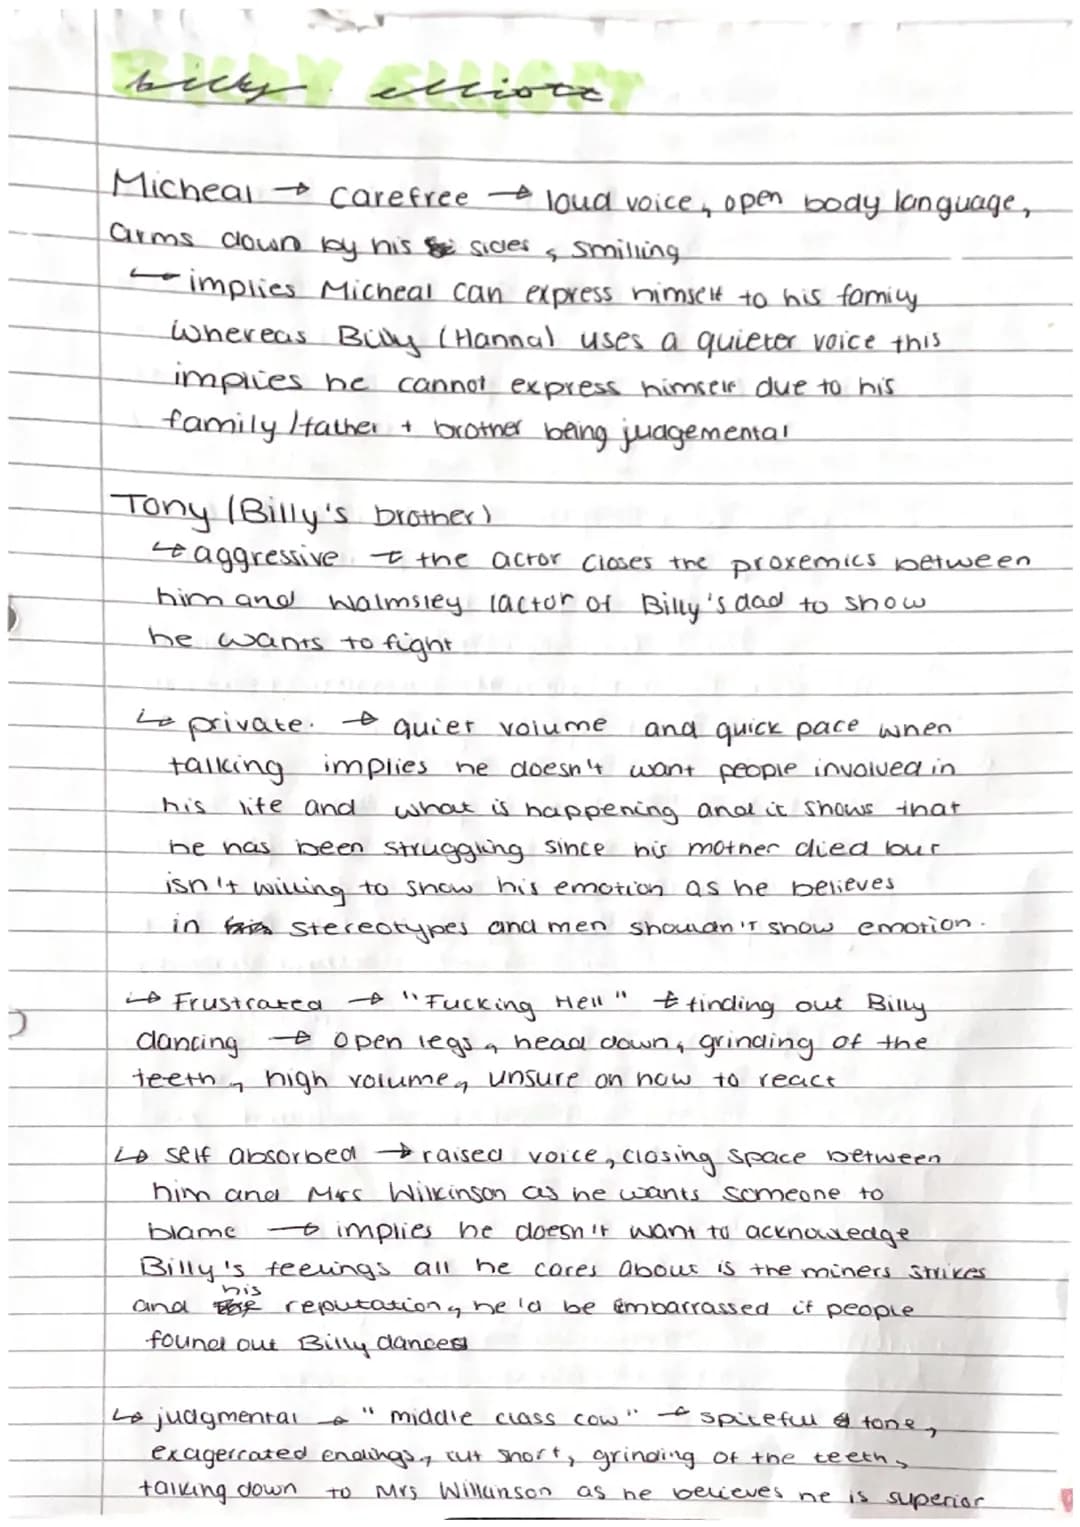 billy elliott
Micheal → carefree → loud voice, open body language,
arms down by his sides, smilling
↳ implies Micheal can express himself to his family
whereas Billy (Hanna) uses a quieter voice this
implies he cannot express himself due to his
family/father + brother being judgemental
Tony (Billy's brother)
↳ aggressive → the actor closes the proxemics between
him and Walmsley (actor of Billy's dad to show
he wants to fight
↳ private. → quiet volume and quick pace when
talking implies he doesn't want people involved in
his life and what is happening and it shows that
he has been struggling since his mother died but
isn't willing to show his emotion as he believes
in stereotypes and men shouldn't show emotion.
↳ Frustrated → "Fucking Hell" → finding out Billy
dancing → open legs, head down, grinding of the
teeth, high volume, unsure on how to react
↳ self absorbed → raised voice, closing space between
him and Mrs Wilkinson as he wants someone to
blame → implies he doesn't want to acknowledge
Billy's feelings all he cares about is the miners strikes
and his reputation, he'd be embarrassed if people
found out Billy dances
↳ judgmental → "middle class cow" → spitefull tone,
exagerrated endings, cut short, grinding of the teeth,
talking down to Mrs Willunson as he believes he is superior